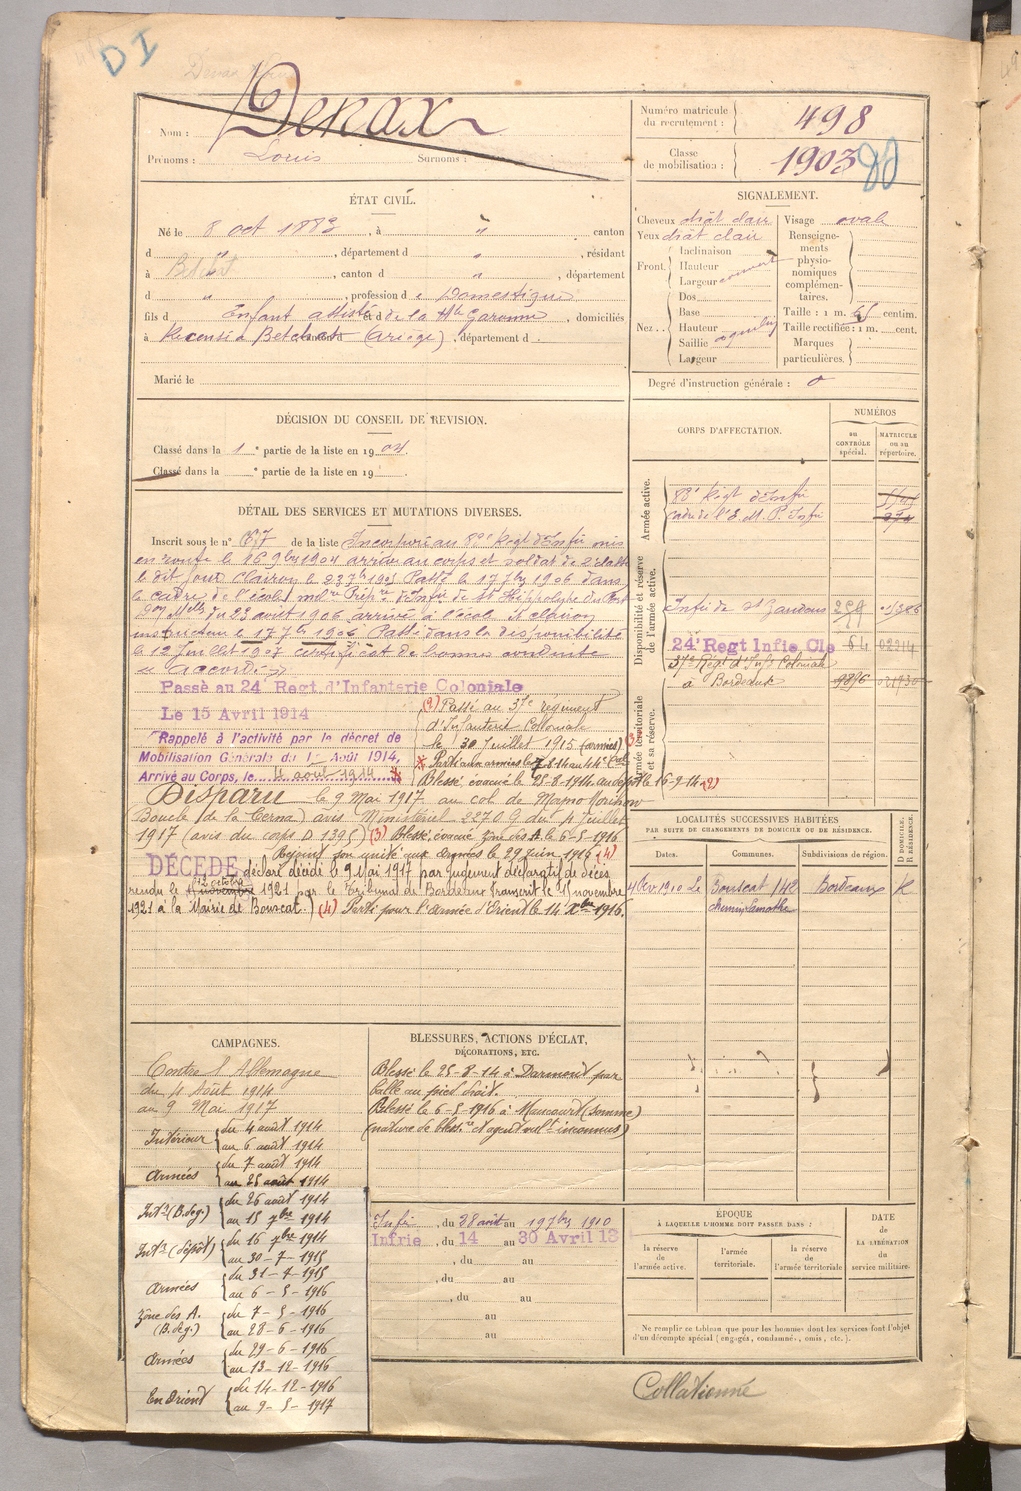 DI
Nom : Denax
Prénoms : Louis Surnoms :
Numéro matricule du recrutement : 498
Classe de mobilisation : 1903
ÉTAT CIVIL.
Né le 8 oct 1883, à " canton
d ", département d , résidant
à , canton d ", département
d ", profession de Domestique
fils d Enfant assisté et d de la Hte Garonne, domiciliés
à Recensé à Betchat (Ariège), département d
Marié le
SIGNALEMENT.
Cheveux chât clair
Yeux chât clair
Front. Inclinaison
Hauteur
Largeur
Nez. Dos
Base
Hauteur
Saillie
Largeur
Visage ovale
Renseignements physionomiques complémentaires.
Taille : 1 m. 65 centim.
Taille rectifiée : 1 m. cent.
Marques particulières.
Degré d'instruction générale : 0
DÉCISION DU CONSEIL DE REVISION.
Classé dans la 1e partie de la liste en 1904.
Classé dans la e partie de la liste en 19
CORPS D'AFFECTATION.
NUMÉROS
au CONTRÔLE spécial.
MATRICULE ou au répertoire.
Armée active.
83e Régt d'Infie
cadre de l'E. M. P. Infie
Disponibilité et réserve de l'armée active.
Infie de St Gaudens
24e Regt Infie Cle 64 02914
37e Régt d'Infie Coloniale
à Bordeaux 9876
Armée territoriale et sa réserve.
DÉTAIL DES SERVICES ET MUTATIONS DIVERSES.
Inscrit sous le n° 67 de la liste Incorporé au 83e Régt d'Infie mis
en route le 16 9bre 1904 arrivé au corps et soldat de 2e classe
le dit jour Clairon le 23 7bre 1905 Passé le 17 7bre 1906 dans
le cadre de l'école milre Prépre d'Infie de St Hippolyte du Fort
Don Mlle du 23 août 1906 arrivé à l'école et clairon
instructeur le 17 7bre 1906. Passé dans la disponibilité
le 12 Juillet 1907 certificat de bonne conduite
accordé
Passé au 24e Regt. d'Infanterie Coloniale
Le 15 Avril 1914
Rappelé à l'activité par le décret de
Mobilisation Générale du 1er Août 1914,
Arrivé au Corps, le 4 août 1914
(2) Passé au 37e régiment
d'Infanterie Coloniale
le 30 Juillet 1915 (armées) (3
Parti aux armées le 7-8-14 au 44e Cal
Blessé évacué le 25-8-1914. au dépôt le 16-9-14 (2)
Disparu le 9 Mai 1917 au col de
(Boucle de la Cerna) avis Ministériel 2270 9 du 4 Juillet
1917 (avis du corps D 1395) (3) Blessé, évacué zone des A. le 6-5-1916
Rejoint son unité aux armées le 29 Juin 1916 (4)
DÉCÉDÉ déclaré décédé le 9 Mai 1917 par Jugement déclaratif de décès
rendu le 12 octobre 1921 par le Tribunal de Bordeaux transcrit le novembre
1921 à la Mairie de Bouscat. (4) Parti pour l'armée d'Orient le 14 Xbre 1916.
LOCALITÉS SUCCESSIVES HABITÉES
PAR SUITE DE CHANGEMENTS DE DOMICILE OU DE RÉSIDENCE.
Dates. Communes. Subdivisions de région. D DOMICILE. R RÉSIDENCE.
4 fév. 1910 Le Bouscat 142 Bordeaux R
chemin Lamothe
CAMPAGNES.
Contre l'Allemagne
du 4 Août 1914
au 9 Mai 1917
Intérieur du 4 août 1914
au 6 août 1914
Armées du 7 août 1914
au 25 août 1914
Intr (B. deg.) du 26 août 1914
au 15 7bre 1914
Intr (dépôt) du 16 7bre 1914
au 30-7-1915
Armées du 31-7-1915
au 6-5-1916
Zône des A. (B. deg.) du 7-5-1916
au 28-6-1916
Armées du 29-6-1916
au 13-12-1916
En Orient du 14-12-1916
au 9-5-1917
BLESSURES, ACTIONS D'ÉCLAT,
DÉCORATIONS, ETC.
Blessé le 25-8-14 à par
balle au pied droit.
Blessé le 6-5-1916 à Maucourt (Somme)
(nature de bless.re et agent vul.t inconnus)
Infie, du 28 août au 19 7bre 1910
Infrie, du 14 au 30 Avril 13
, du au
, du au
, du au
au
au
ÉPOQUE
À LAQUELLE L'HOMME DOIT PASSER DANS :
la réserve de l'armée active.
l'armée territoriale.
la réserve de l'armée territoriale
DATE de LA LIBÉRATION du service militaire.
Ne remplir ce tableau que pour les hommes dont les services font l'objet
d'un décompte spécial (engagés, condamnés, omis, etc.).
Collationné